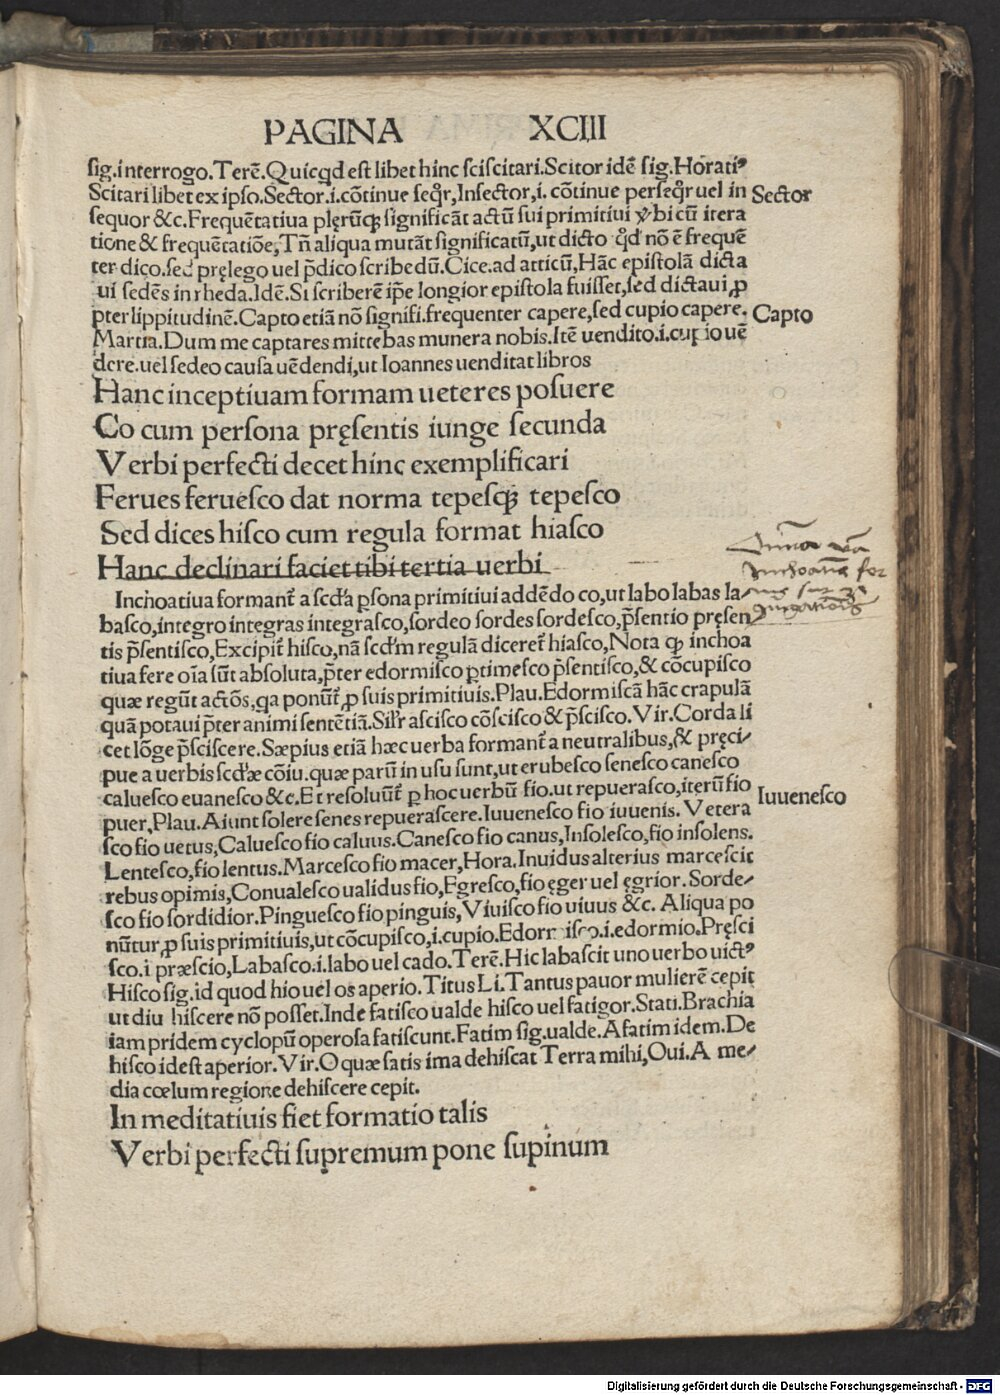 PAGINA XCIII
sig.interrogo.Terē.Quicqd est libet hinc sciscitari.Scitor idē sig.Horati⁹
Scitari libet ex ipso.Sector.i.cōtinue seqr̄,Insector,i. cōtinue perseqr̄ uel in
Sector
sequor &c.Frequētatiua plęrūq; significāt actū sui primitiui v̄bi cū itera
tione & frequētatiōe,Tn̄ aliqua mutāt significatū,ut dicto qd̄ nō ē frequē
ter dico.sed pręlego uel p̄dico scribēdū.Cice.ad atticū,Hāc epistolā dicta
ui sedēs in rheda.Idē.Si scriberē ip̄e longior epistola fuisset,sed dictaui,p
pter lippitudinē.Capto etiā nō signifi.frequenter capere,sed cupio capere.
Capto
Martia.Dum me captares mittebas munera nobis.Itē uendito.i.cupio uē
dere.uel sedeo causa uēdendi,ut Ioannes uenditat libros
Hanc inceptiuam formam ueteres posuere
Co cum persona pręsentis iunge secunda
Verbi perfecti decet hinc exemplificari
Ferues feruesco dat norma tepesq; tepesco
Sed dices hisco cum regula format hiasco
Hanc declinari faciet tibi tertia uerbi
Inchoatiua formant̄ a scd̄a psona primitiui addēdo co,ut labo labas la⸗
basco,integro integras integrasco,sordeo sordes sordesco,p̄sentio pręsen
tis p̄sentisco,Excipit̄ hisco,nā scd̄m regulā diceret̄ hiasco,Nota q; inchoa
tiua fere oīa sūt absoluta,p̄ter edormisco ptimesco p̄sentisco,& cōcupisco
quæ regūt actōs,qa ponūt̄ ,p suis primitiuis.Plau.Edormiscā hāc crapulā
quā potaui p̄ter animi sentētiā.Silr̄ ascisco cōscisco & p̄scisco.Vir.Corda li
cet lōge p̄sciscere.Sæpius etiā hæc uerba formant̄ a neutralibus,& pręci⸗
pue a uerbis scd̄æ cōiu.quæ parū in usu sunt,ut erubesco senesco canesco
caluesco euanesco &c.Et resoluūt̄ p hoc uerbū fio.ut repuerasco,iterū fio
Iuuenesco
puer,Plau.Aiunt solere senes repuerascere.Iuuenesco fio iuuenis. Vetera
sco fio uetus,Caluesco fio caluus.Canesco fio canus,Insolesco,fio insolens.
Lentesco,fio lentus.Marcesco fio macer,Hora.Inuidus alterius marcescit
rebus opimis,Conualesco ualidus fio,Egresco,fio ęger uel ęgrior.Sorde⸗
sco fio sordidior.Pinguesco fio pinguis,Viuisco fio uiuus &c. Aliqua po
nūtur,p suis primitiuis,ut cōcupisco,i.cupio.Edormisco.i.edormio.Pręsci
sco.i præscio,Labasco.i.labo uel cado.Terē.Hic labascit uno uerbo uict⁹
Hisco sig.id quod hio uel os aperio.Titus Li.Tantus pauor mulierē cepit
ut diu hiscere nō posset.Inde fatisco ualde hisco uel fatigor.Stati.Brachia
iam pridem cyclopū operosa fatiscunt.Fatim sig.ualde.Afatim idem.De
hisco idest aperior.Vir.O quæ satis ima dehiscat Terra mihi,Oui.A me⸗
dia cœlum regione dehiscere cepit.
In meditatiuis fiet formatio talis
Verbi perfecti supremum pone supinum
Digitalisierung gefördert durch die Deutsche Forschungsgemeinschaft - DFG